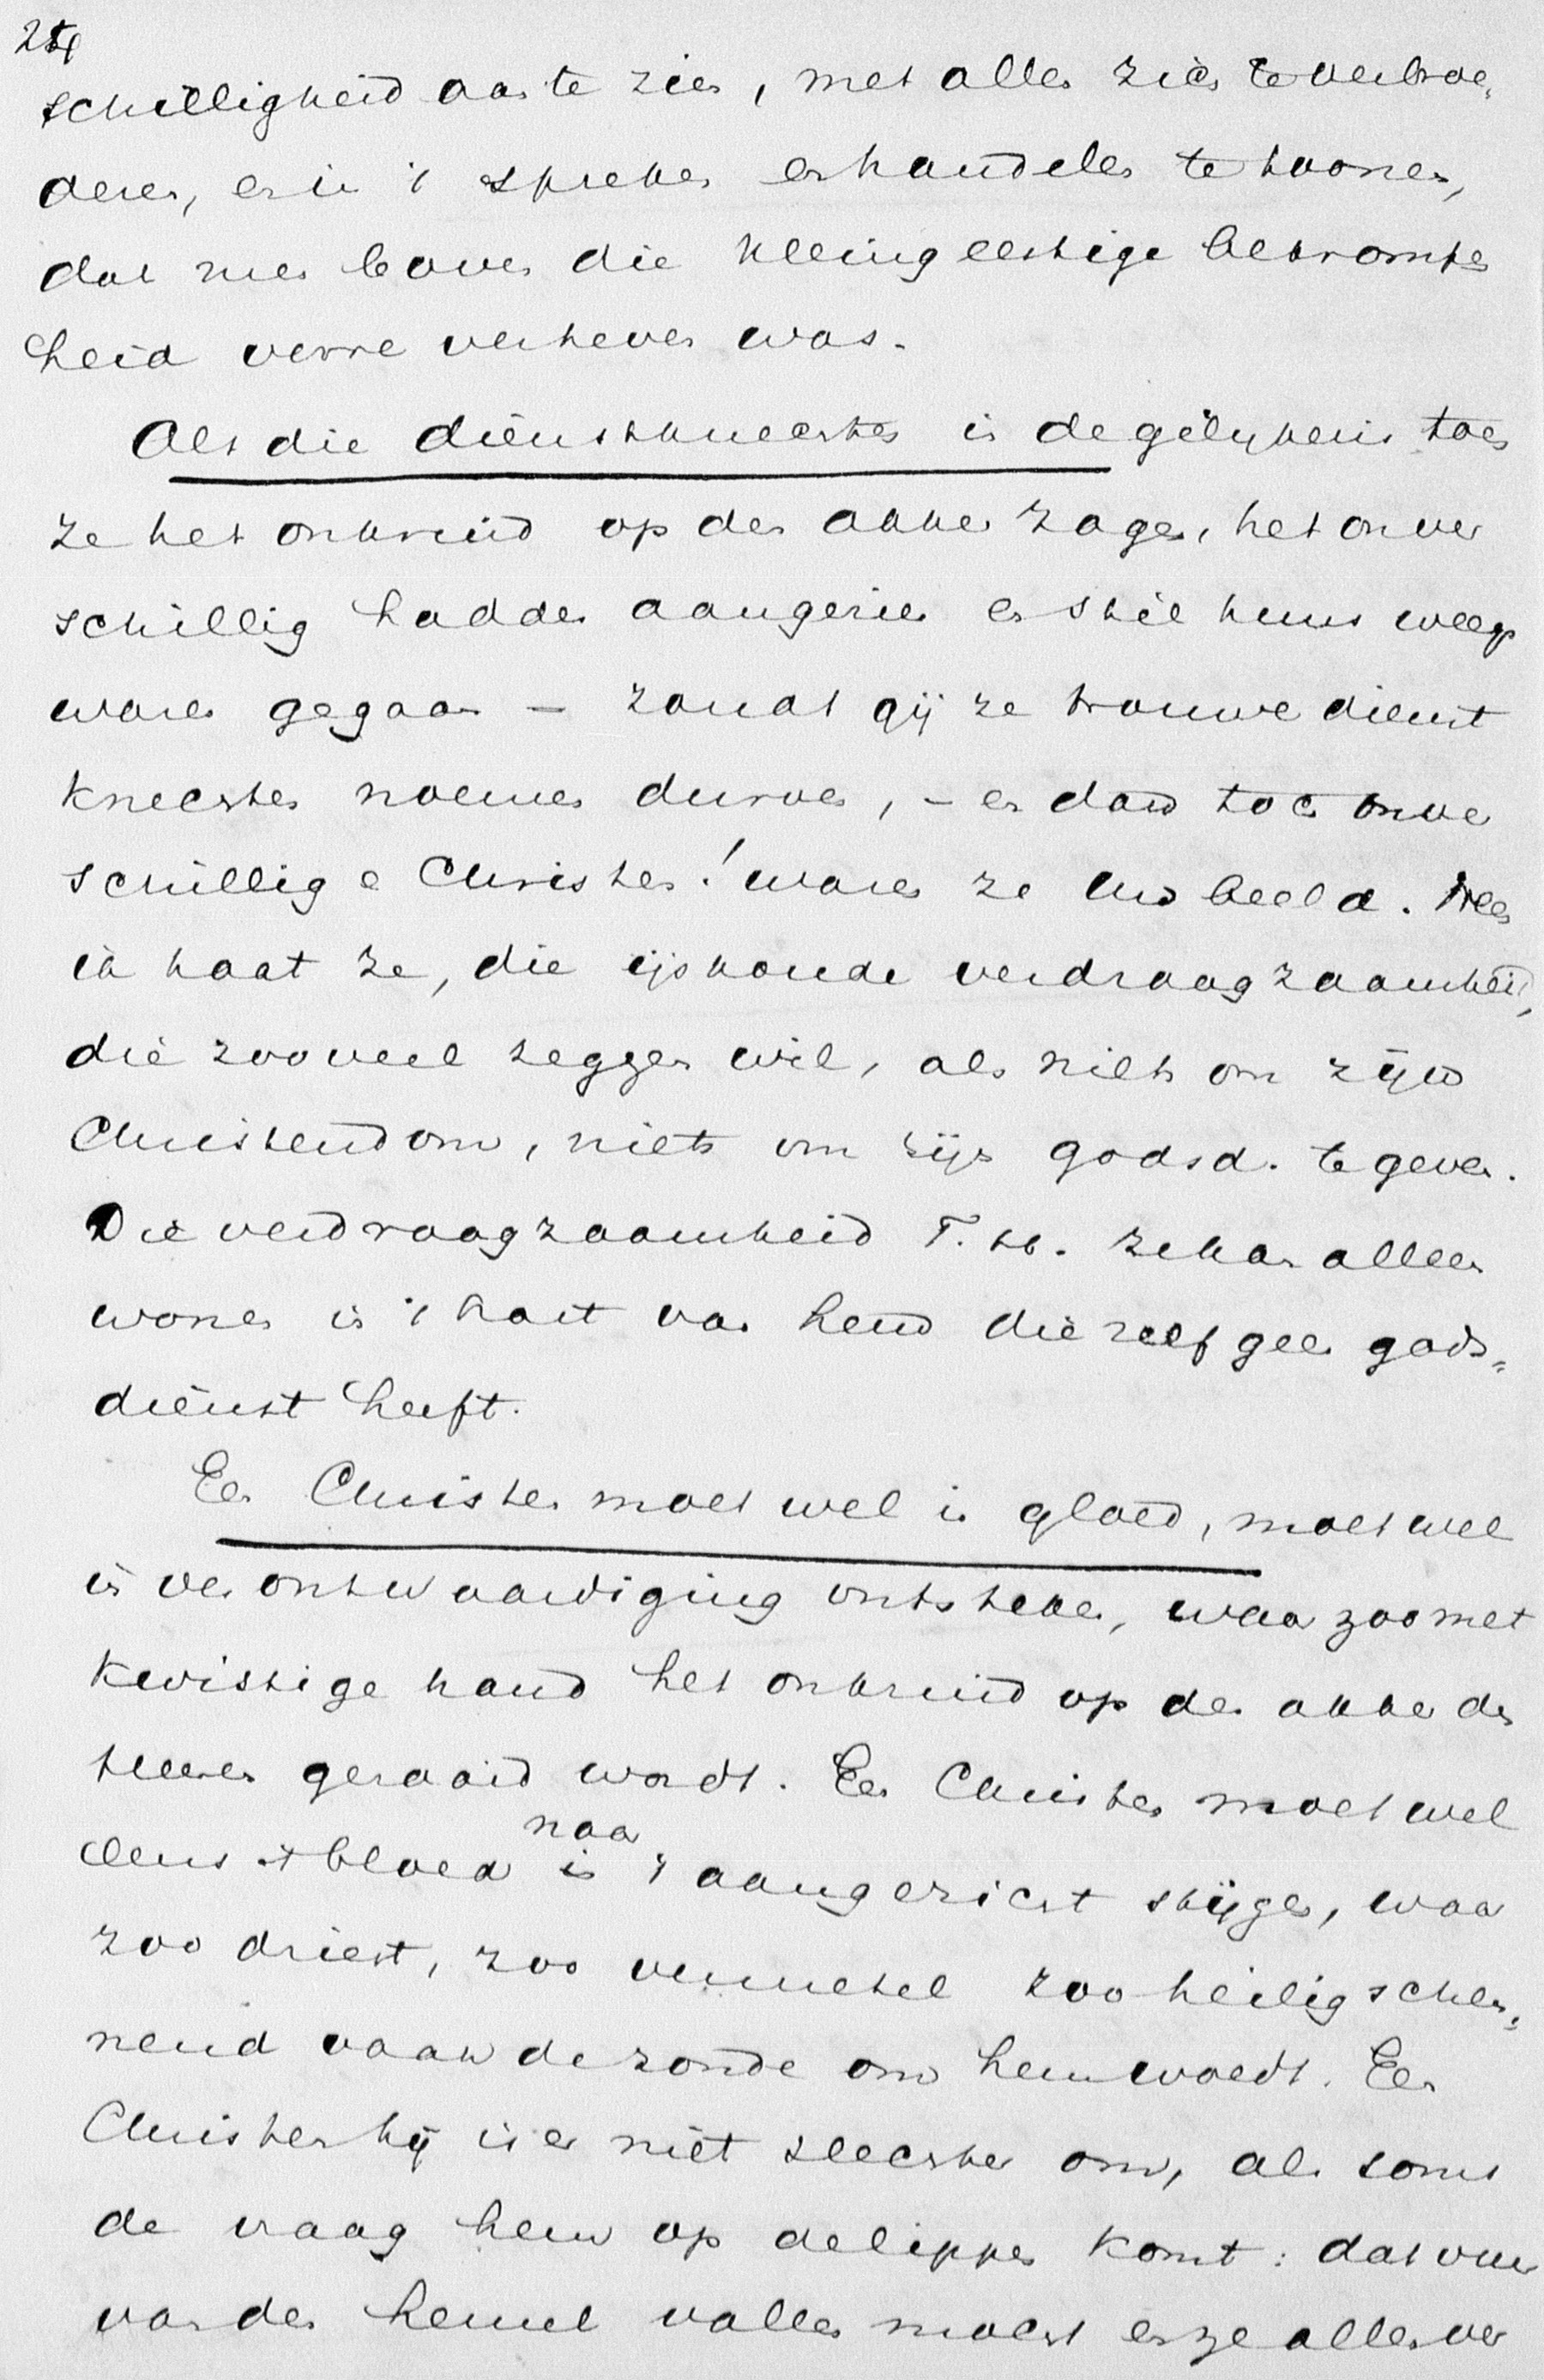 254
schilligheid aan te zien, met allen zich te verbroe,
deren, en in 't spreken en handelen te toonen,
dat men boven die kleingeestige bekrompen
heid verre verheven was.
Als die dienstknechten in de gelijkenis toen
ze het onkruid op den akker zagen, het onver
schillig hadden aangezien en stil huns weegs
waren gegaan – zoudt gij ze trouwe dienst
knechten noemen durven, – en dan toch onver
schillige Christen! waren ze uw beeld. Neen
ik haat ze, die ijskoude verdraagzaamheid,
die zooveel zeggen wil, als niets om zijn
Christendom, niets om zijn godsd. te geven.
Die verdraagzaamheid T. H. ze kan alleen
wonen in 't hart van hem die zelf geen gods,
dienst heeft.
Een Christen moet wel in gloed, moet wel
in verontwaardiging ontsteken, waar zoo met
kwistige hand het onkruid op den akker des
Heeren gezaaid wordt. Een Christen moet wel
eens 't bloed in naar 't aangezicht stijgen, waar
zoo driest, zoo vermetel zoo heiligschen,
nend vaak de zonde om hem woedt. Een
Christen hij is er niet slechter om, als soms
de vraag hem op de lippen komt: dat vuur
van den hemel vallen mocht en ze allen ver